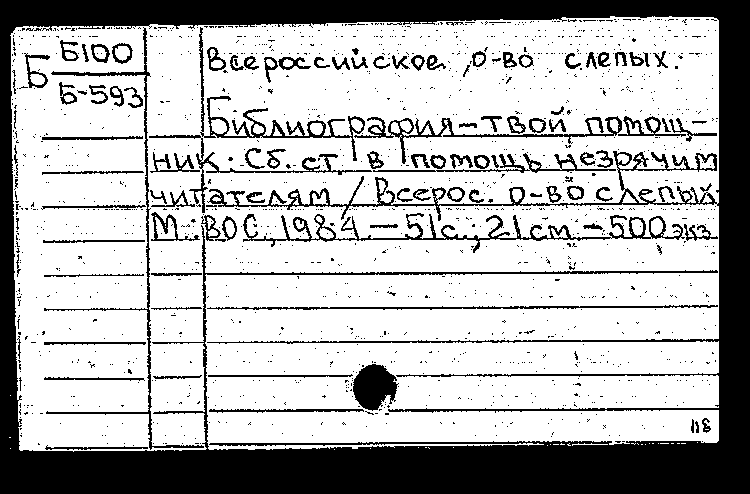 Б Б100
Б-593
Всероссийское о-во слепых.
Библиография-твой помощ-
ник: Сб. ст. в помощь незрячим
читателям / Всерос. о-во слепых.
М.: ВОС, 1984. — 51с.; 21см. — 500 экз
118